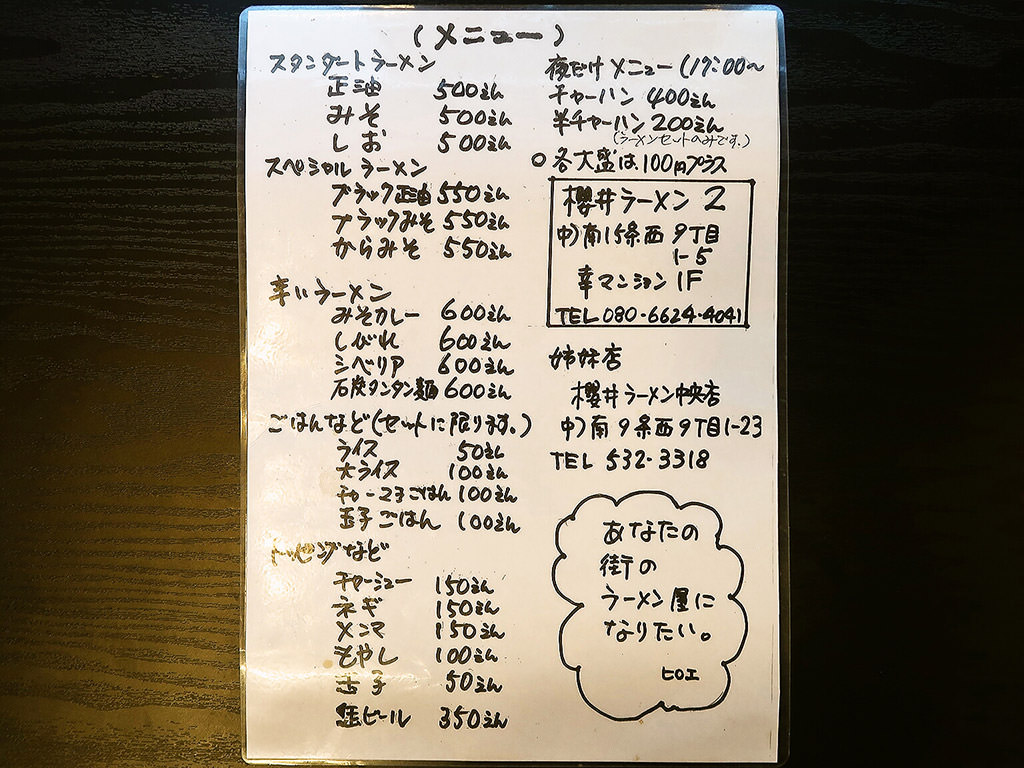 (メニュー)
スタンダートラーメン
正油 500えん
みそ 500えん
しお 500えん
スペシャルラーメン
ブラック正油 550えん
ブラックみそ 550えん
からみそ 550えん
辛いラーメン
みそカレー 600えん
しびれ 600えん
シベリア 600えん
石炭タンタン麺 600えん
ごはんなど(セットに限ります。)
ライス 50えん
大ライス 100えん
チャーマヨごはん 100えん
玉子ごはん 100えん
トッピングなど
チャーシュー 150えん
ネギ 150えん
メンマ 150えん
もやし 100えん
玉子 50えん
缶ビール 350えん
夜だけメニュー(17:00〜
チャーハン 400えん
半チャーハン 200えん
(ラーメンセットのみです。)
○各大盛は100円プラス
櫻井ラーメン 2
中)南15条西9丁目
1-5
幸マンション1F
TEL 080-6624-4041
姉妹店
櫻井ラーメン中央店
中)南9条西9丁目1-23
TEL 532-3318
あなたの
街の
ラーメン屋に
なりたい。
ヒロエ